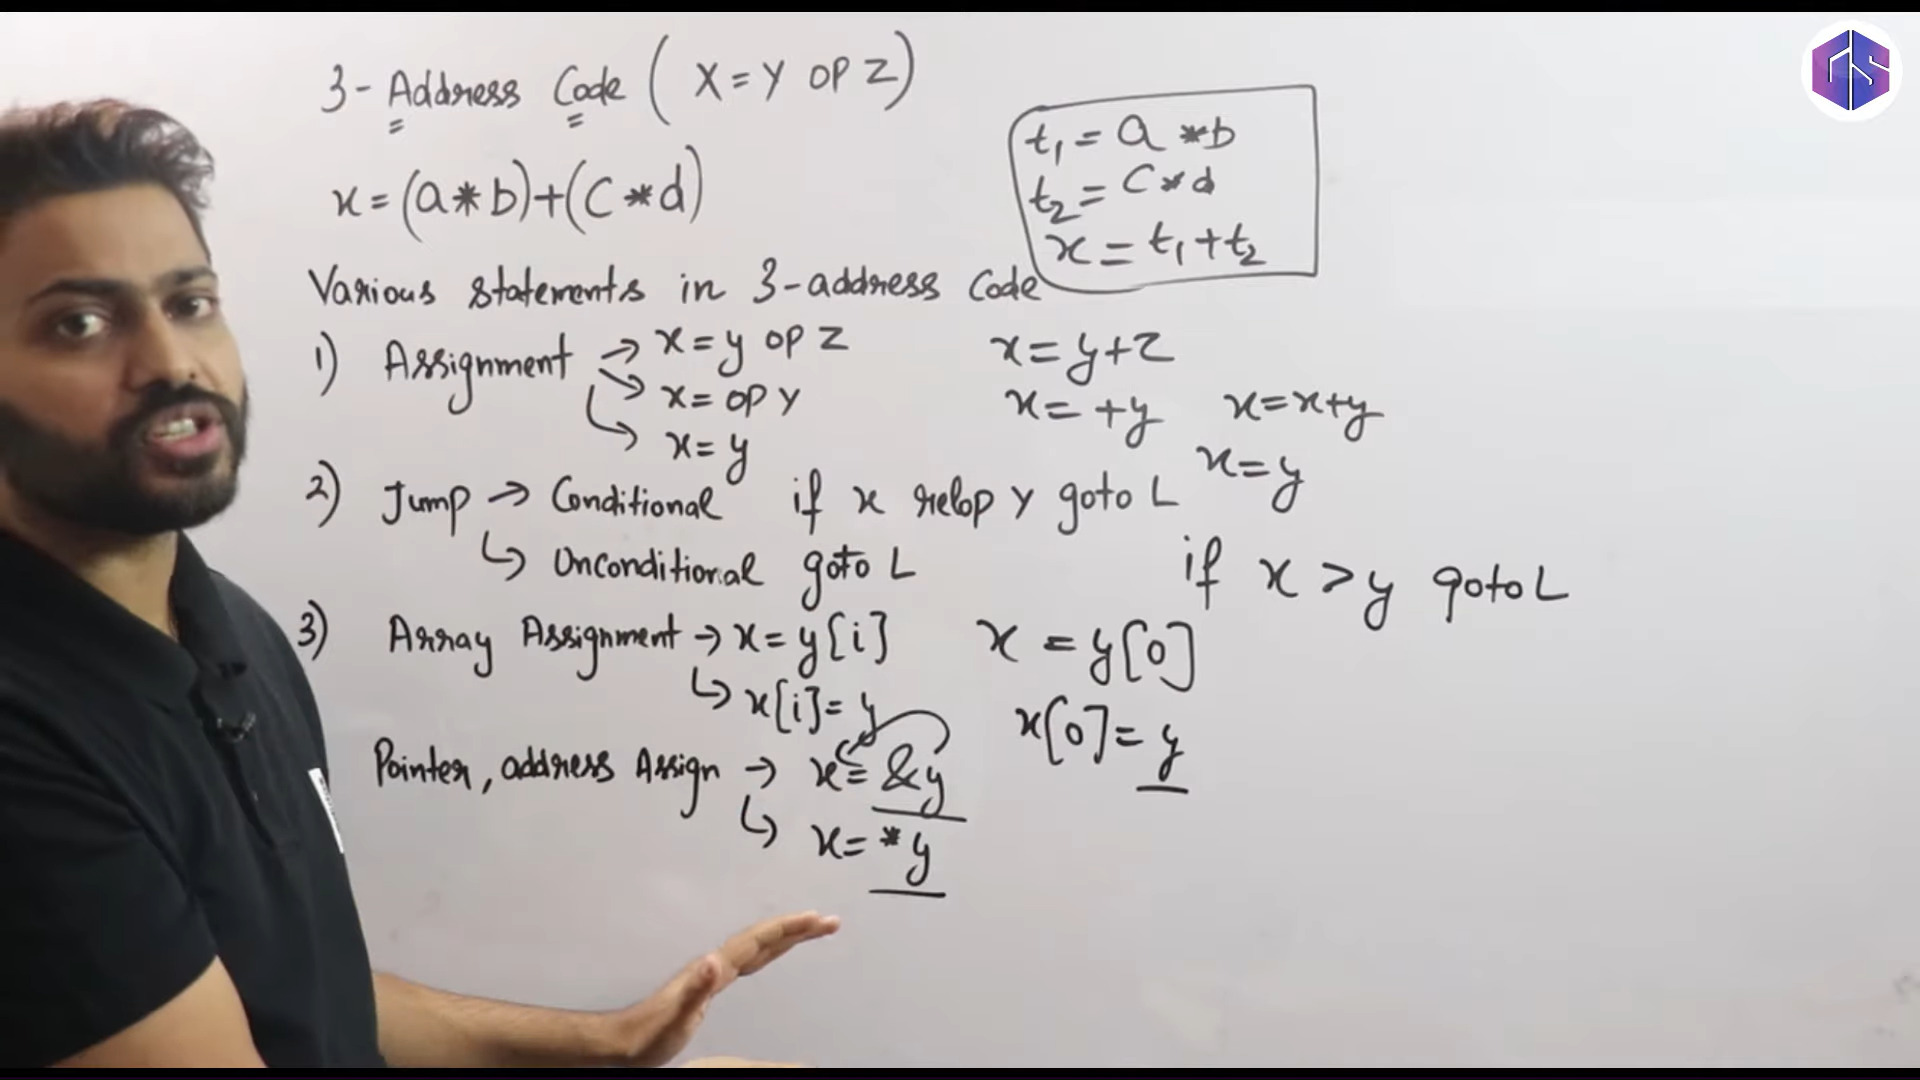 3-Address Code ( X = Y OP Z )
x = (a * b) + (c * d)
t1 = a * b
t2 = c * d
x = t1 + t2
Various statements in 3-address Code
1) Assignment → x = y op z
x = y + z
→ x = op y
x = +y
x = x+y
↳ x = y
x = y
2) Jump → Conditional if x relop y goto L
↳ Unconditional goto L
if x > y goto L
3) Array Assignment → x = y[i]
x = y[0]
↳ x[i] = y
x[0] = y
Pointer, address Assign → x = &y
↳ x = *y